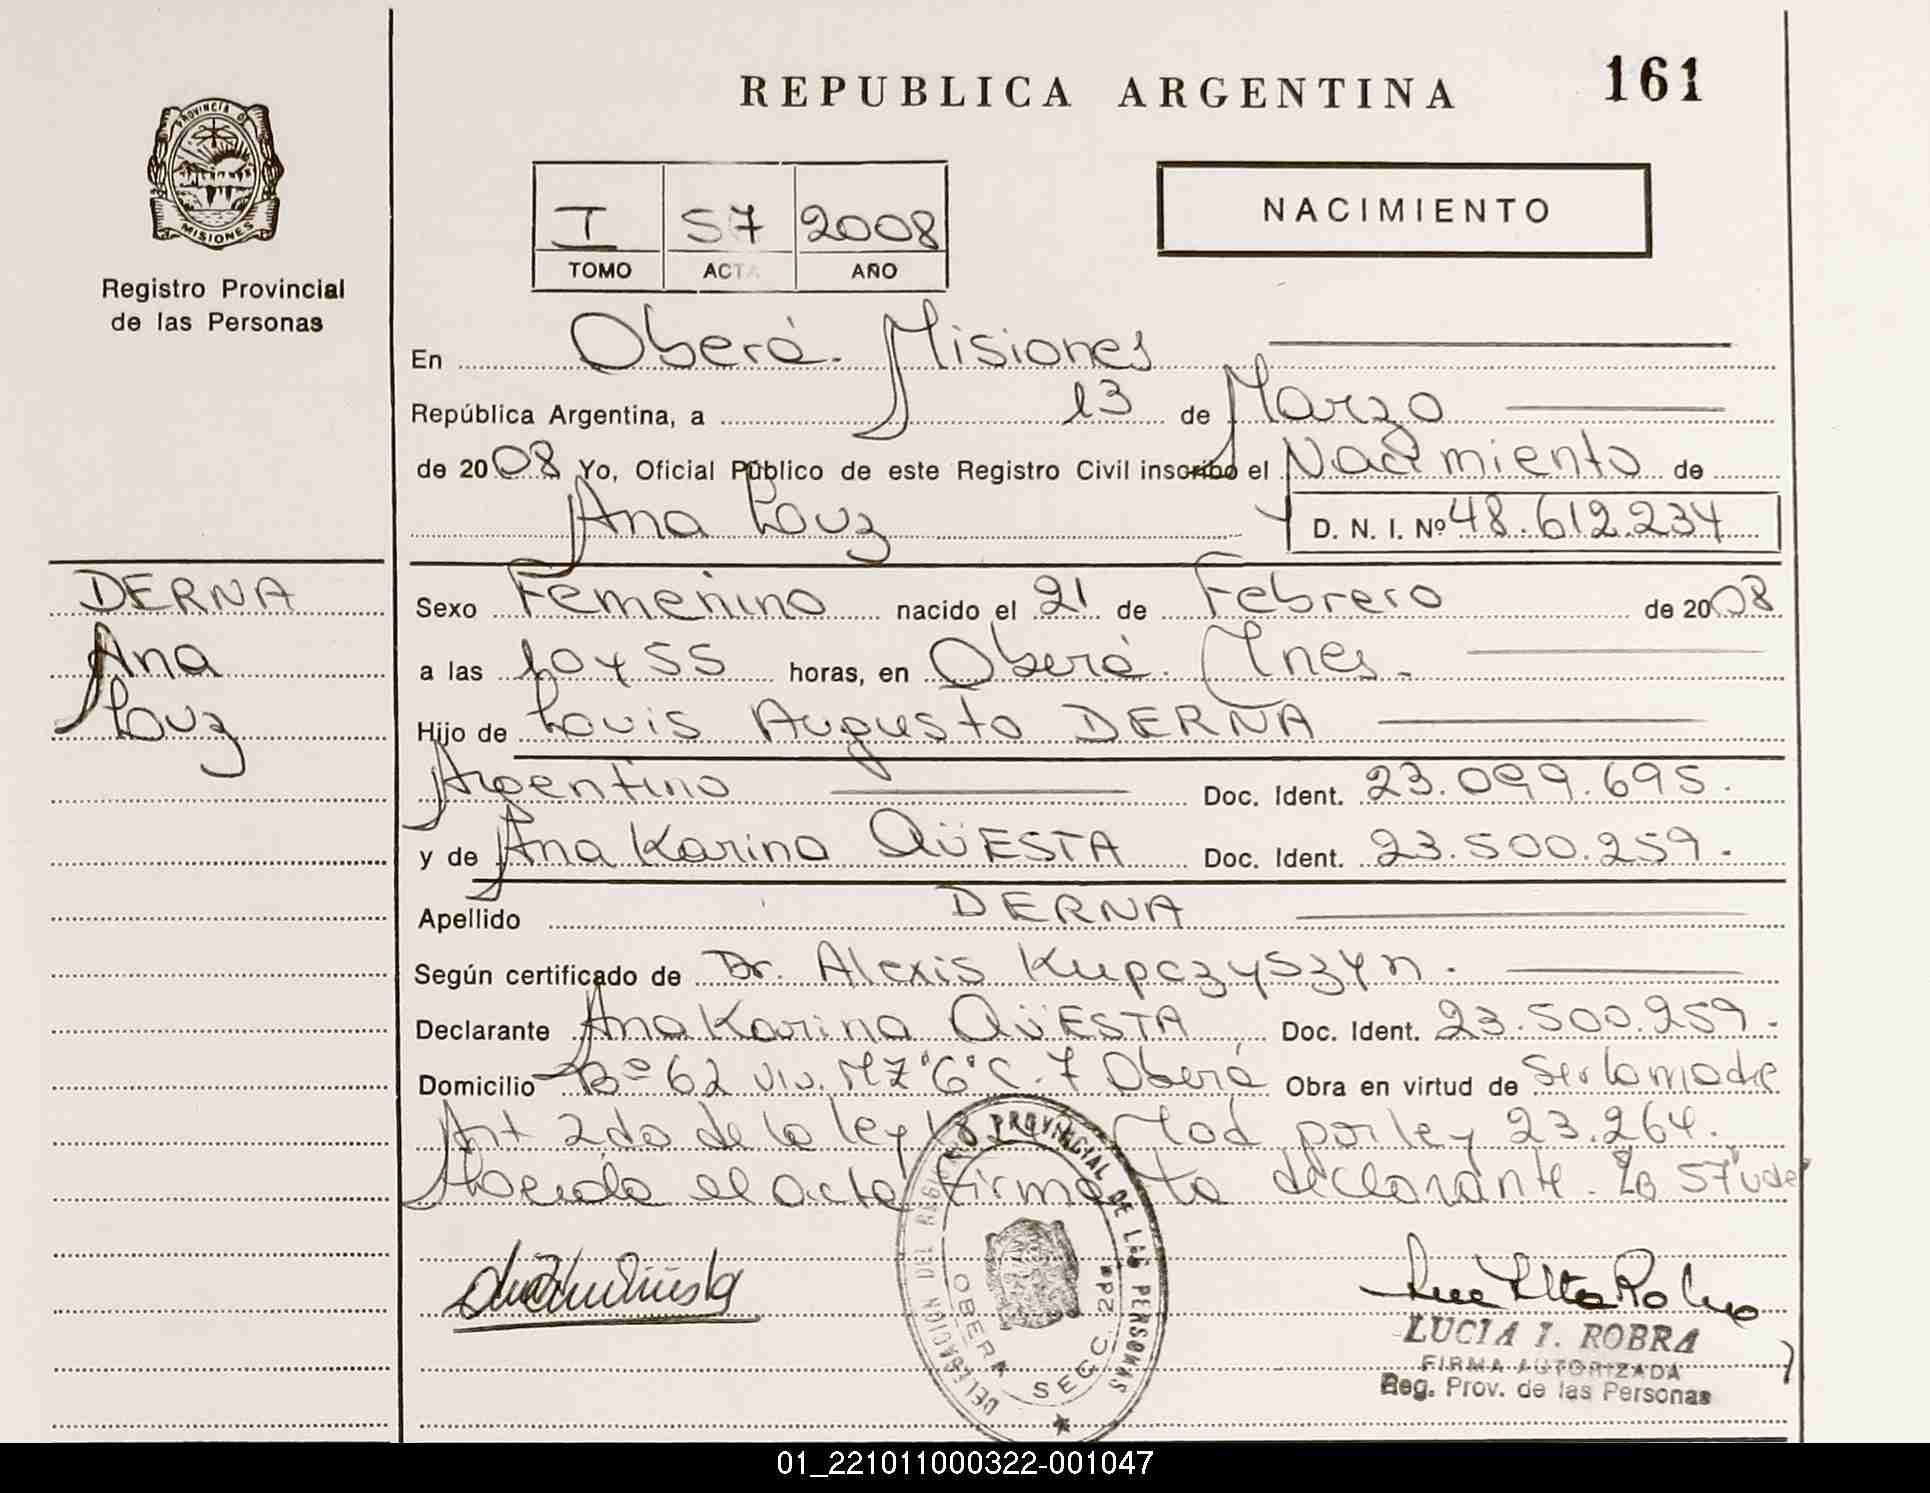 REPUBLICA ARGENTINA
161
PROVINCIA DE
MISIONES
Registro Provincial
de las Personas
I 57 2008
TOMO ACTA AÑO
NACIMIENTO
En Oberá. Misiones
República Argentina, a 13 de Marzo
de 2008 Yo, Oficial Público de este Registro Civil inscribo el Nacimiento de
Ana Louz
D. N. I. Nº 48.612.234
DERNA
Ana
Louz
Sexo Femenino nacido el 21 de Febrero de 2008
a las 10 y 55 horas, en Oberá. Mnes.
Hijo de Louis Augusto DERNA
Argentino Doc. Ident. 23.099.695.
y de Ana Karina QÜESTA Doc. Ident. 23.500.259.
Apellido DERNA
Según certificado de Dr. Alexis Kupczyszyn.
Declarante Ana Karina QÜESTA Doc. Ident. 23.500.259.
Domicilio Bº 62 viv. MZ "G" C. 7 Oberá Obra en virtud de Ser la madre
Art 2do de la ley 18. Mod por ley 23.264.
el acta firma la declarante.
DELEGACIÓN DEL REGISTRO PROVINCIAL DE LAS PERSONAS
OBERA SECC. 2da
LUCIA I. ROBRA
FIRMA AUTORIZADA
Reg. Prov. de las Personas
01_221011000322-001047